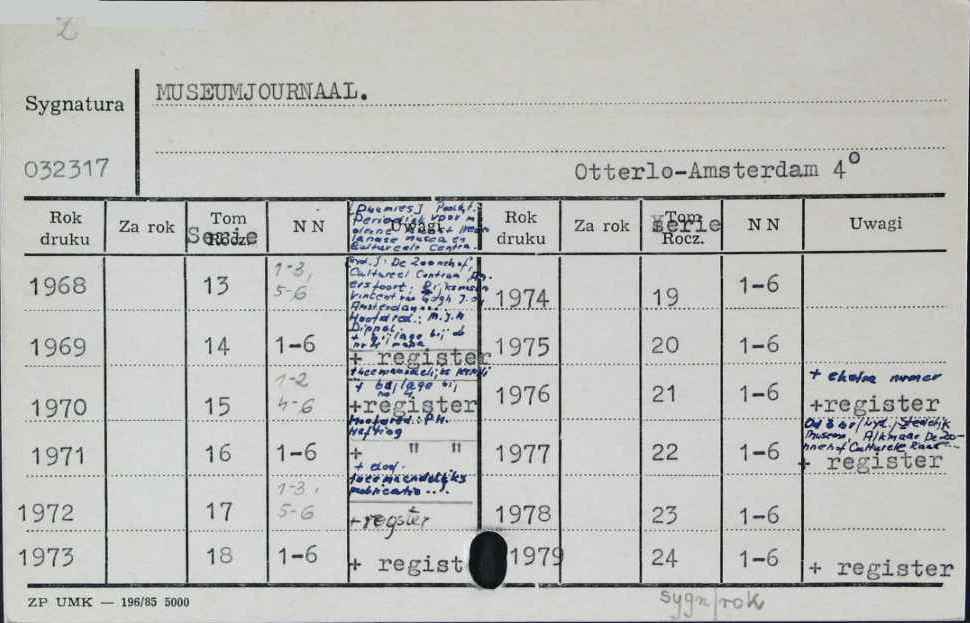 Z
MUSEUMJOURNAAL.
Sygnatura
032317
Otterlo-Amsterdam 4°
Rok druku Za rok Tom Rocz. Serie N N Uwagi Rok druku Za rok Tom Rocz. serie N N Uwagi
Periodiek voor
musea en
Cultureele Centra
1968 13 1-3, 5-6
De Zonnehof,
Cultureel Centrum
Vincent van Gogh
Amsterdam
Hoofdred.: M.J.H
1974 19 1-6
1969 14 1-6 + register 1975 20 1-6
1970 15 1-2 4-6 + bijlage bij
+register
Hoofdred.: P.H.
Hefting
1976 21 1-6 + ekstra numer
+register
1971 16 1-6 + " "
+ dod.
tweemaandelijks
publicatie ...
1977 22 1-6 Stedelijk
Museum, Alkmaar De Zo-
nnehof Culturele Raad
+ register
1972 17 1-3, 5-6 +regster 1978 23 1-6
1973 18 1-6 + regist 1979 24 1-6 + register
ZP UMK — 196/85 5000
sygn/rok